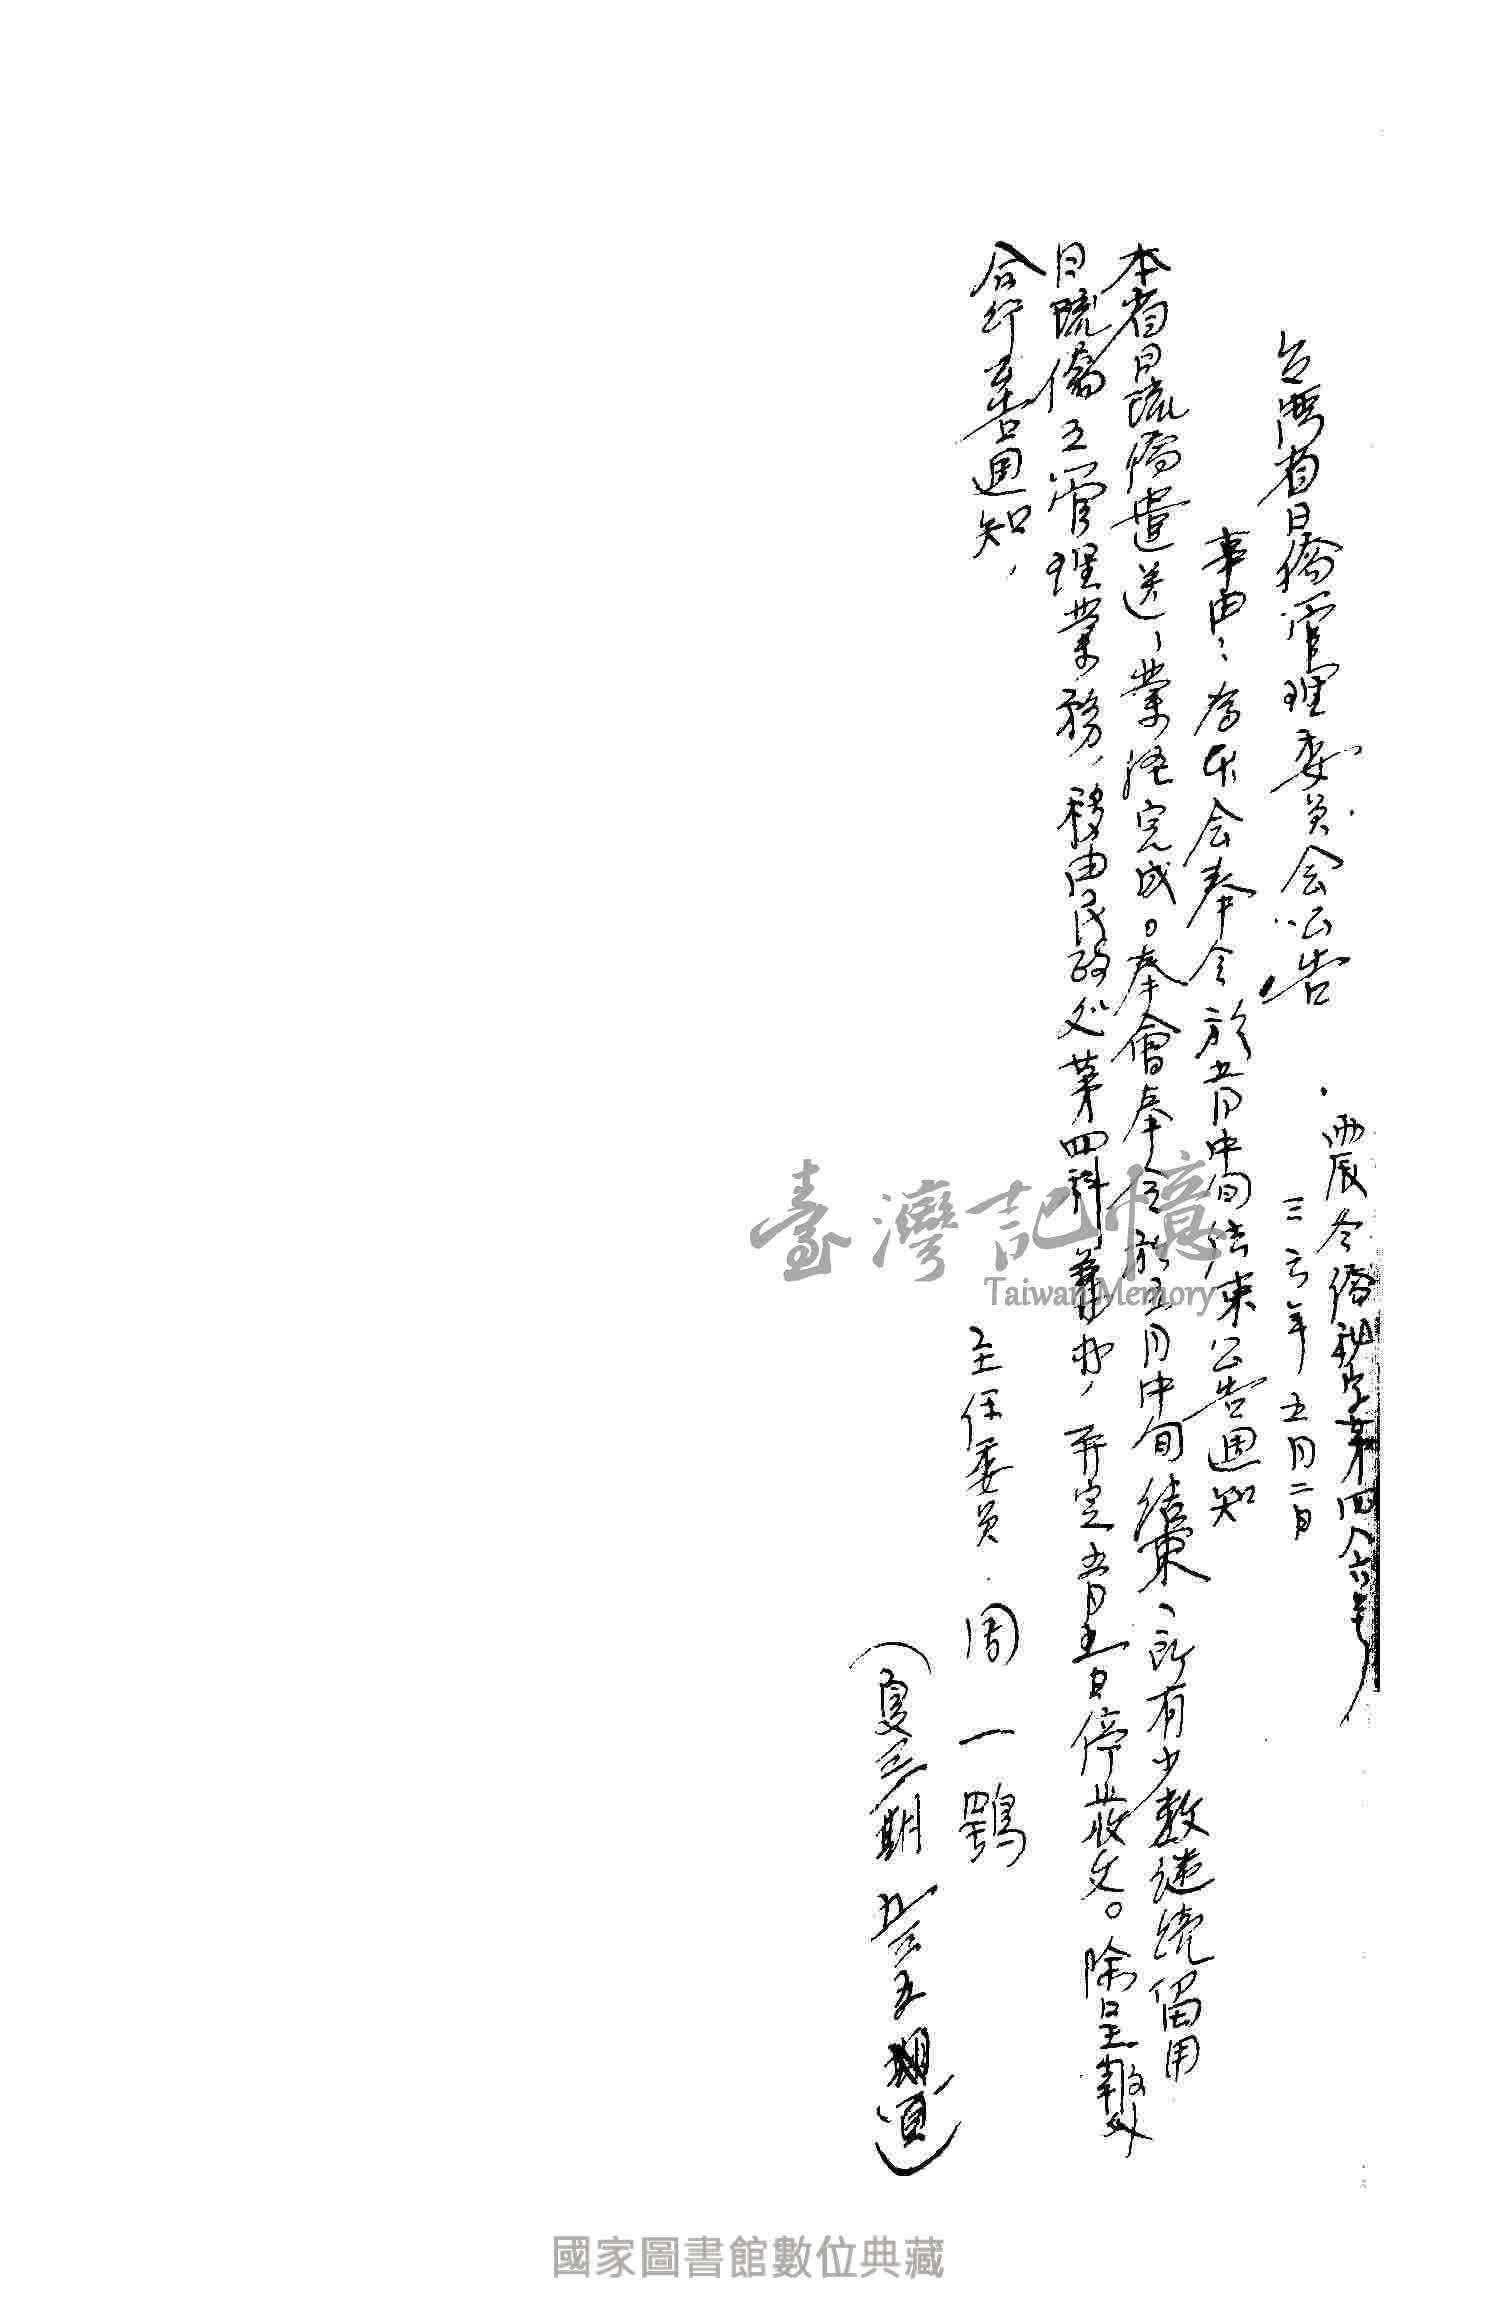 台灣省日僑管理委員会公告
丙辰冬僑秘字第四八六号
三六年五月二日
事由：為本会奉令於五月中旬结束公告週知
本省日琉僑遣送，業經完成。奉會奉令於五月中旬结束、所有少數继续留用
日琉僑工管理業務，移由民政处第四科兼办，并定五月五日停收文。除呈報外
合行公告週知，
主任委員 周一鶚
（夏 期 五 期 頁）
臺灣記憶
Taiwan Memory
國家圖書館數位典藏